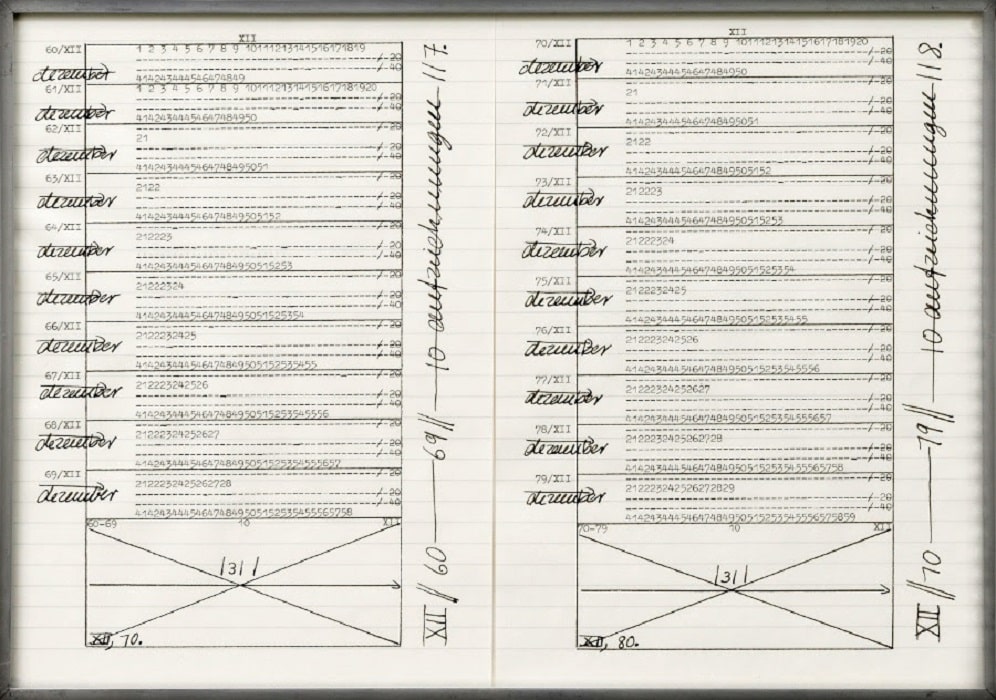 XII
60/XII
1 2 3 4 5 6 7 8 9 10111213141516171819
/ 20
/ 40
dezember
414243444546474849
61/XII
1 2 3 4 5 6 7 8 9 1011121314151617181920
/ 20
/ 40
dezember
41424344454647484950
62/XII
21
/ 20
/ 40
dezember
4142434445464748495051
63/XII
2122
/ 20
/ 40
dezember
414243444546474849505152
64/XII
212223
/ 20
/ 40
dezember
41424344454647484950515253
65/XII
21222324
/ 20
/ 40
dezember
4142434445464748495051525354
66/XII
2122232425
/ 20
/ 40
dezember
414243444546474849505152535455
67/XII
212223242526
/ 20
/ 40
dezember
41424344454647484950515253545556
68/XII
21222324252627
/ 20
/ 40
dezember
4142434445464748495051525354555657
69/XII
2122232425262728
/ 20
/ 40
dezember
414243444546474849505152535455565758
60-69 10 XII
|31|
XII, 70.
XII // 60 — 69 // — 10 aufzeichnungen — 117.
XII
70/XII
1 2 3 4 5 6 7 8 9 1011121314151617181920
/ 20
/ 40
dezember
41424344454647484950
71/XII
21
/ 20
/ 40
dezember
4142434445464748495051
72/XII
2122
/ 20
/ 40
dezember
414243444546474849505152
73/XII
212223
/ 20
/ 40
dezember
41424344454647484950515253
74/XII
21222324
/ 20
/ 40
dezember
4142434445464748495051525354
75/XII
2122232425
/ 20
/ 40
dezember
414243444546474849505152535455
76/XII
212223242526
/ 20
/ 40
dezember
41424344454647484950515253545556
77/XII
21222324252627
/ 20
/ 40
dezember
4142434445464748495051525354555657
78/XII
2122232425262728
/ 20
/ 40
dezember
414243444546474849505152535455565758
79/XII
212223242526272829
/ 20
/ 40
dezember
41424344454647484950515253545556575859
70-79 10 XII
|31|
XII, 80.
XII // 70 — 79 // — 10 aufzeichnungen — 118.